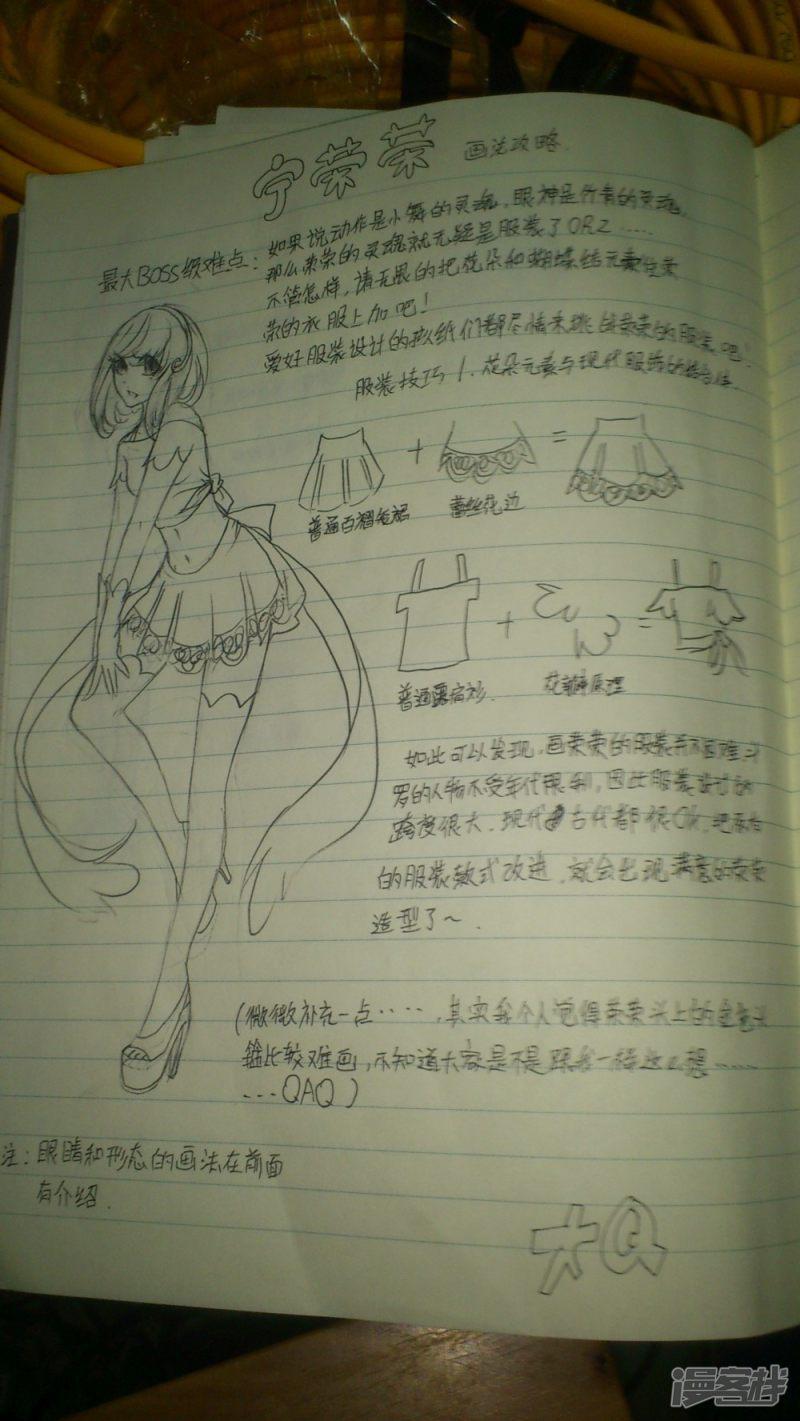 宁荣荣 画法攻略
最大BOSS级难点:如果说动作是小舞的灵魂,眼神是竹青的灵魂,
那么荣荣的灵魂就无疑是服装了ORZ……
不管怎样,请无限的把花朵和蝴蝶结元素往荣
荣的衣服上加吧!
爱好服装设计的孩纸们都尽情来挑战荣荣的服装吧!
服装技巧1.花朵元素与现代服饰的结合
+ =
普通百褶短裙 蕾丝花边
+ =
普通露肩衫 花瓣原理
如此可以发现,画荣荣的服装并不困难斗
罗的人物不受年代限制,因此服装款式的
跨度很大.现代古代都很OK,把原有
的服装款式改进,就会出现满意的荣荣
造型了~.
(微微补充一点····,其实我个人觉得荣荣头上的
比较难画,不知道大家是不是跟我一样这么想……
…QAQ)
注:眼睛和形态的画法在前面
有介绍.
大Q
漫客栈